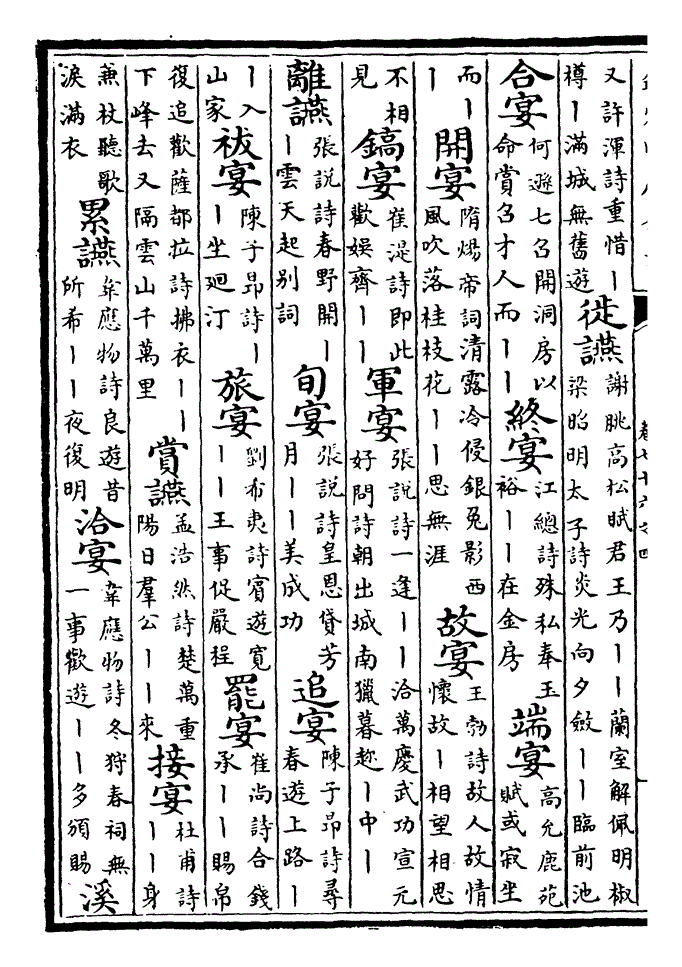 卷七十六之四
又許渾詩重惜丨樽丨滿城無舊遊徙讌謝朓高松賦君王乃丨丨蘭室解佩明椒梁昭明太子詩炎光向夕斂丨丨臨前池
合宴何遜七召開洞房以命賞召才人而丨丨終宴江總詩殊私奉玉裕丨丨在金房端宴高允鹿苑賦或寂坐
而丨丨開宴隋煬帝詞清露冷侵銀兔影西風吹落桂枝花丨丨思無涯故宴王勃詩故人故情懷故丨相望相思
不相見鎬宴崔湜詩即此歡娛齊丨丨軍宴張說詩一逢丨丨洽萬慶武功宣元好問詩朝出城南獵暮趂丨中丨
離讌張說詩春野開丨丨雲天起别詞旬宴張說詩皇恩貸芳月丨丨美成功追宴陳子昂詩尋春遊上路丨
丨入山家祓宴陳子昂詩丨丨坐廻汀旅宴劉希夷詩賓遊寬丨丨王事促嚴程罷宴崔尚詩合錢承丨丨賜帛
復追歡薩都拉詩拂衣丨丨下峰去又隔雲山千萬里賞讌孟浩然詩楚萬重陽日羣公丨丨來接宴杜甫詩丨丨身
兼杖聽歌淚滿衣累讌韋應物詩良遊昔所希丨丨夜復明洽宴韋應物詩冬狩春祠無一事歡遊丨丨多頒賜溪